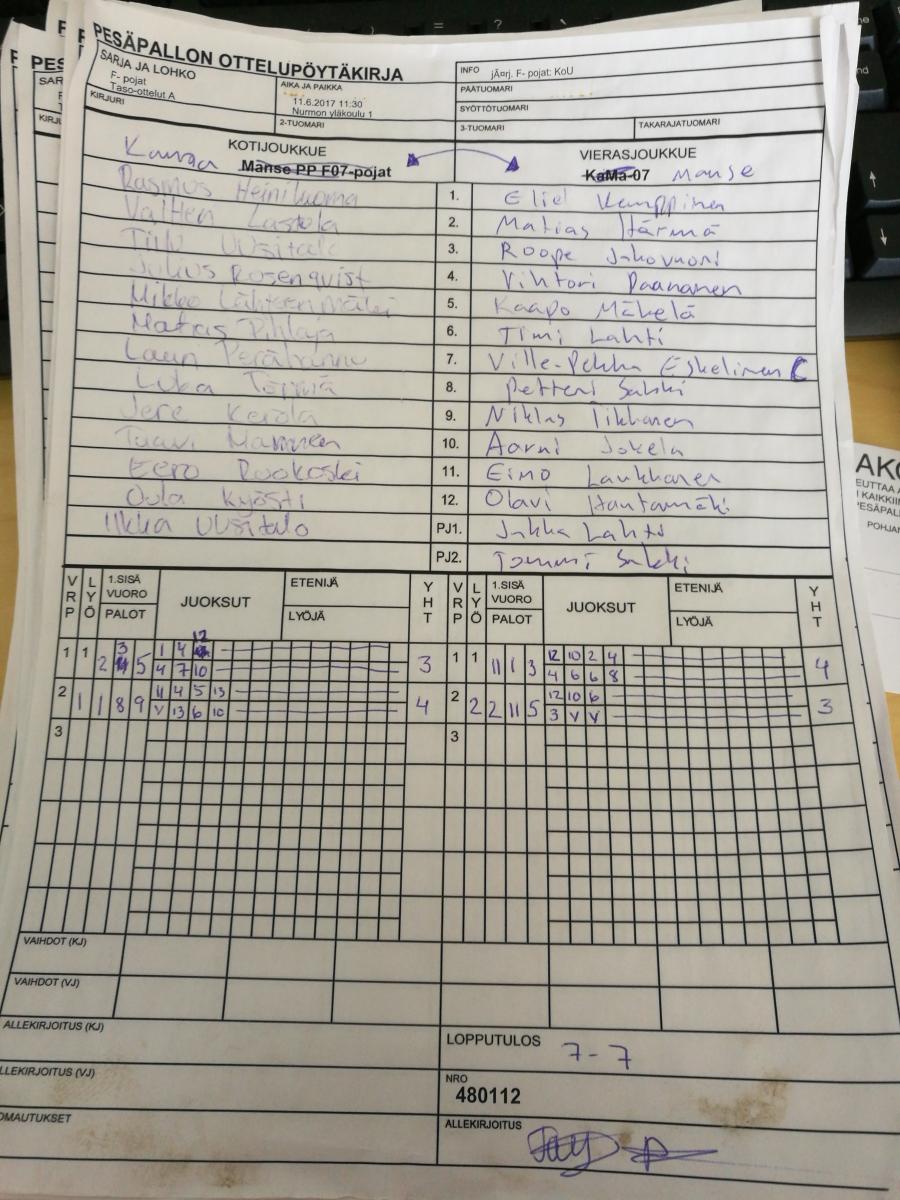 PESÄPALLON OTTELUPÖYTÄKIRJA
SARJA JA LOHKO
F- pojat
Taso-ottelut A
AIKA JA PAIKKA
11.6.2017 11:30
Nurmon yläkoulu 1
INFO jÃ¤rj. F- pojat: KoU
PÄÄTUOMARI
SYÖTTÖTUOMARI
KIRJURI
2-TUOMARI
3-TUOMARI
TAKARAJATUOMARI
KOTIJOUKKUE
VIERASJOUKKUE
Manse PP F07-pojat
KaMa-07 Manse
Rasmus Heiniluoma 1. Eliel Kamppinen
Lastola 2. Matias Härmä
Uusitalo 3. Roope Jokovuori
Julius Rosenqvist 4. Vihtori Paananen
Mikko Lähteenmäki 5. Kaapo Mäkelä
Matias Pihlaja 6. Timi Lahti
Lauri 7. Ville-Pekka Eskelinen C
Luka 8. Petteri Sakki
Jere Kerola 9. Niklas Tikkanen
Taavi 10. Aarni Jokela
Eero Rookoski 11. Eino Laukkanen
Oula Kyösti 12. Olavi Hautamäki
Ilkka Uusitalo PJ1. Jukka Lahti
PJ2. Tommi Sakki
VRP LYÖ 1.SISÄ VUORO PALOT JUOKSUT ETENIJÄ LYÖJÄ YHT VRP LYÖ 1.SISÄ VUORO PALOT JUOKSUT ETENIJÄ LYÖJÄ YHT
12
3 1 4 12 10 2 4
1 1 2 5 4 7 10 3 1 1 11 1 3 4 6 6 8 4
11 4 5 13 12 10 6
2 1 1 8 9 V 13 6 10 4 2 2 2 11 5 3 V V 3
3 3
VAIHDOT (KJ)
VAIHDOT (VJ)
ALLEKIRJOITUS (KJ)
LOPPUTULOS 7-7
LLEKIRJOITUS (VJ)
NRO
480112
OMAUTUKSET
ALLEKIRJOITUS